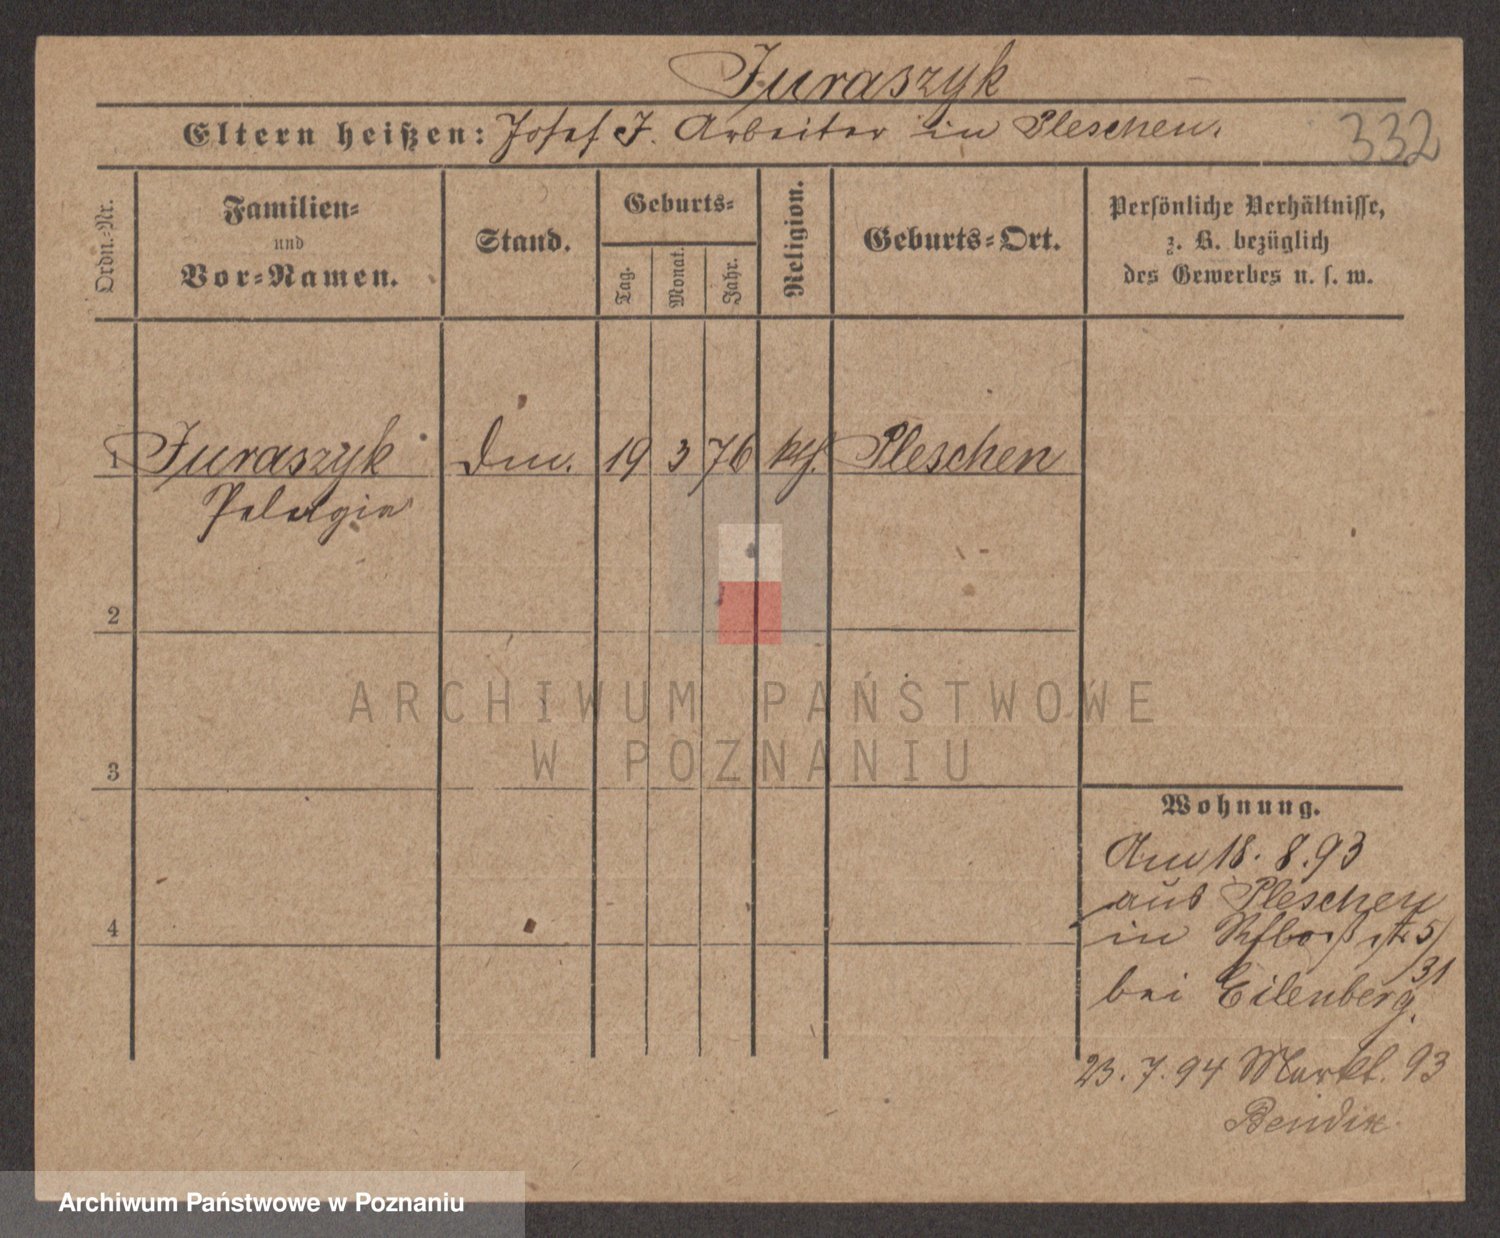 Juraszyk
Eltern heißen: Josef J. Arbeiter in Pleschen.
332
Ordn.-Nr.
Familien-
und
Vor-Namen.
Stand.
Geburts-
Tag.
Monat.
Jahr.
Religion.
Geburts-Ort.
Persönliche Verhältnisse,
z. B. bezüglich
des Gewerbes u. s. w.
1 Juraszyk 19 3 76 kth. Pleschen
Pelagia
2
3
4
ARCHIWUM PAŃSTWOWE
W POZNANIU
Wohnung.
Am 18. 8. 93
aus Pleschen
in 5/
31
bei Eilenberg.
23. 7. 94 Markt. 93
Bendix
Archiwum Państwowe w Poznaniu